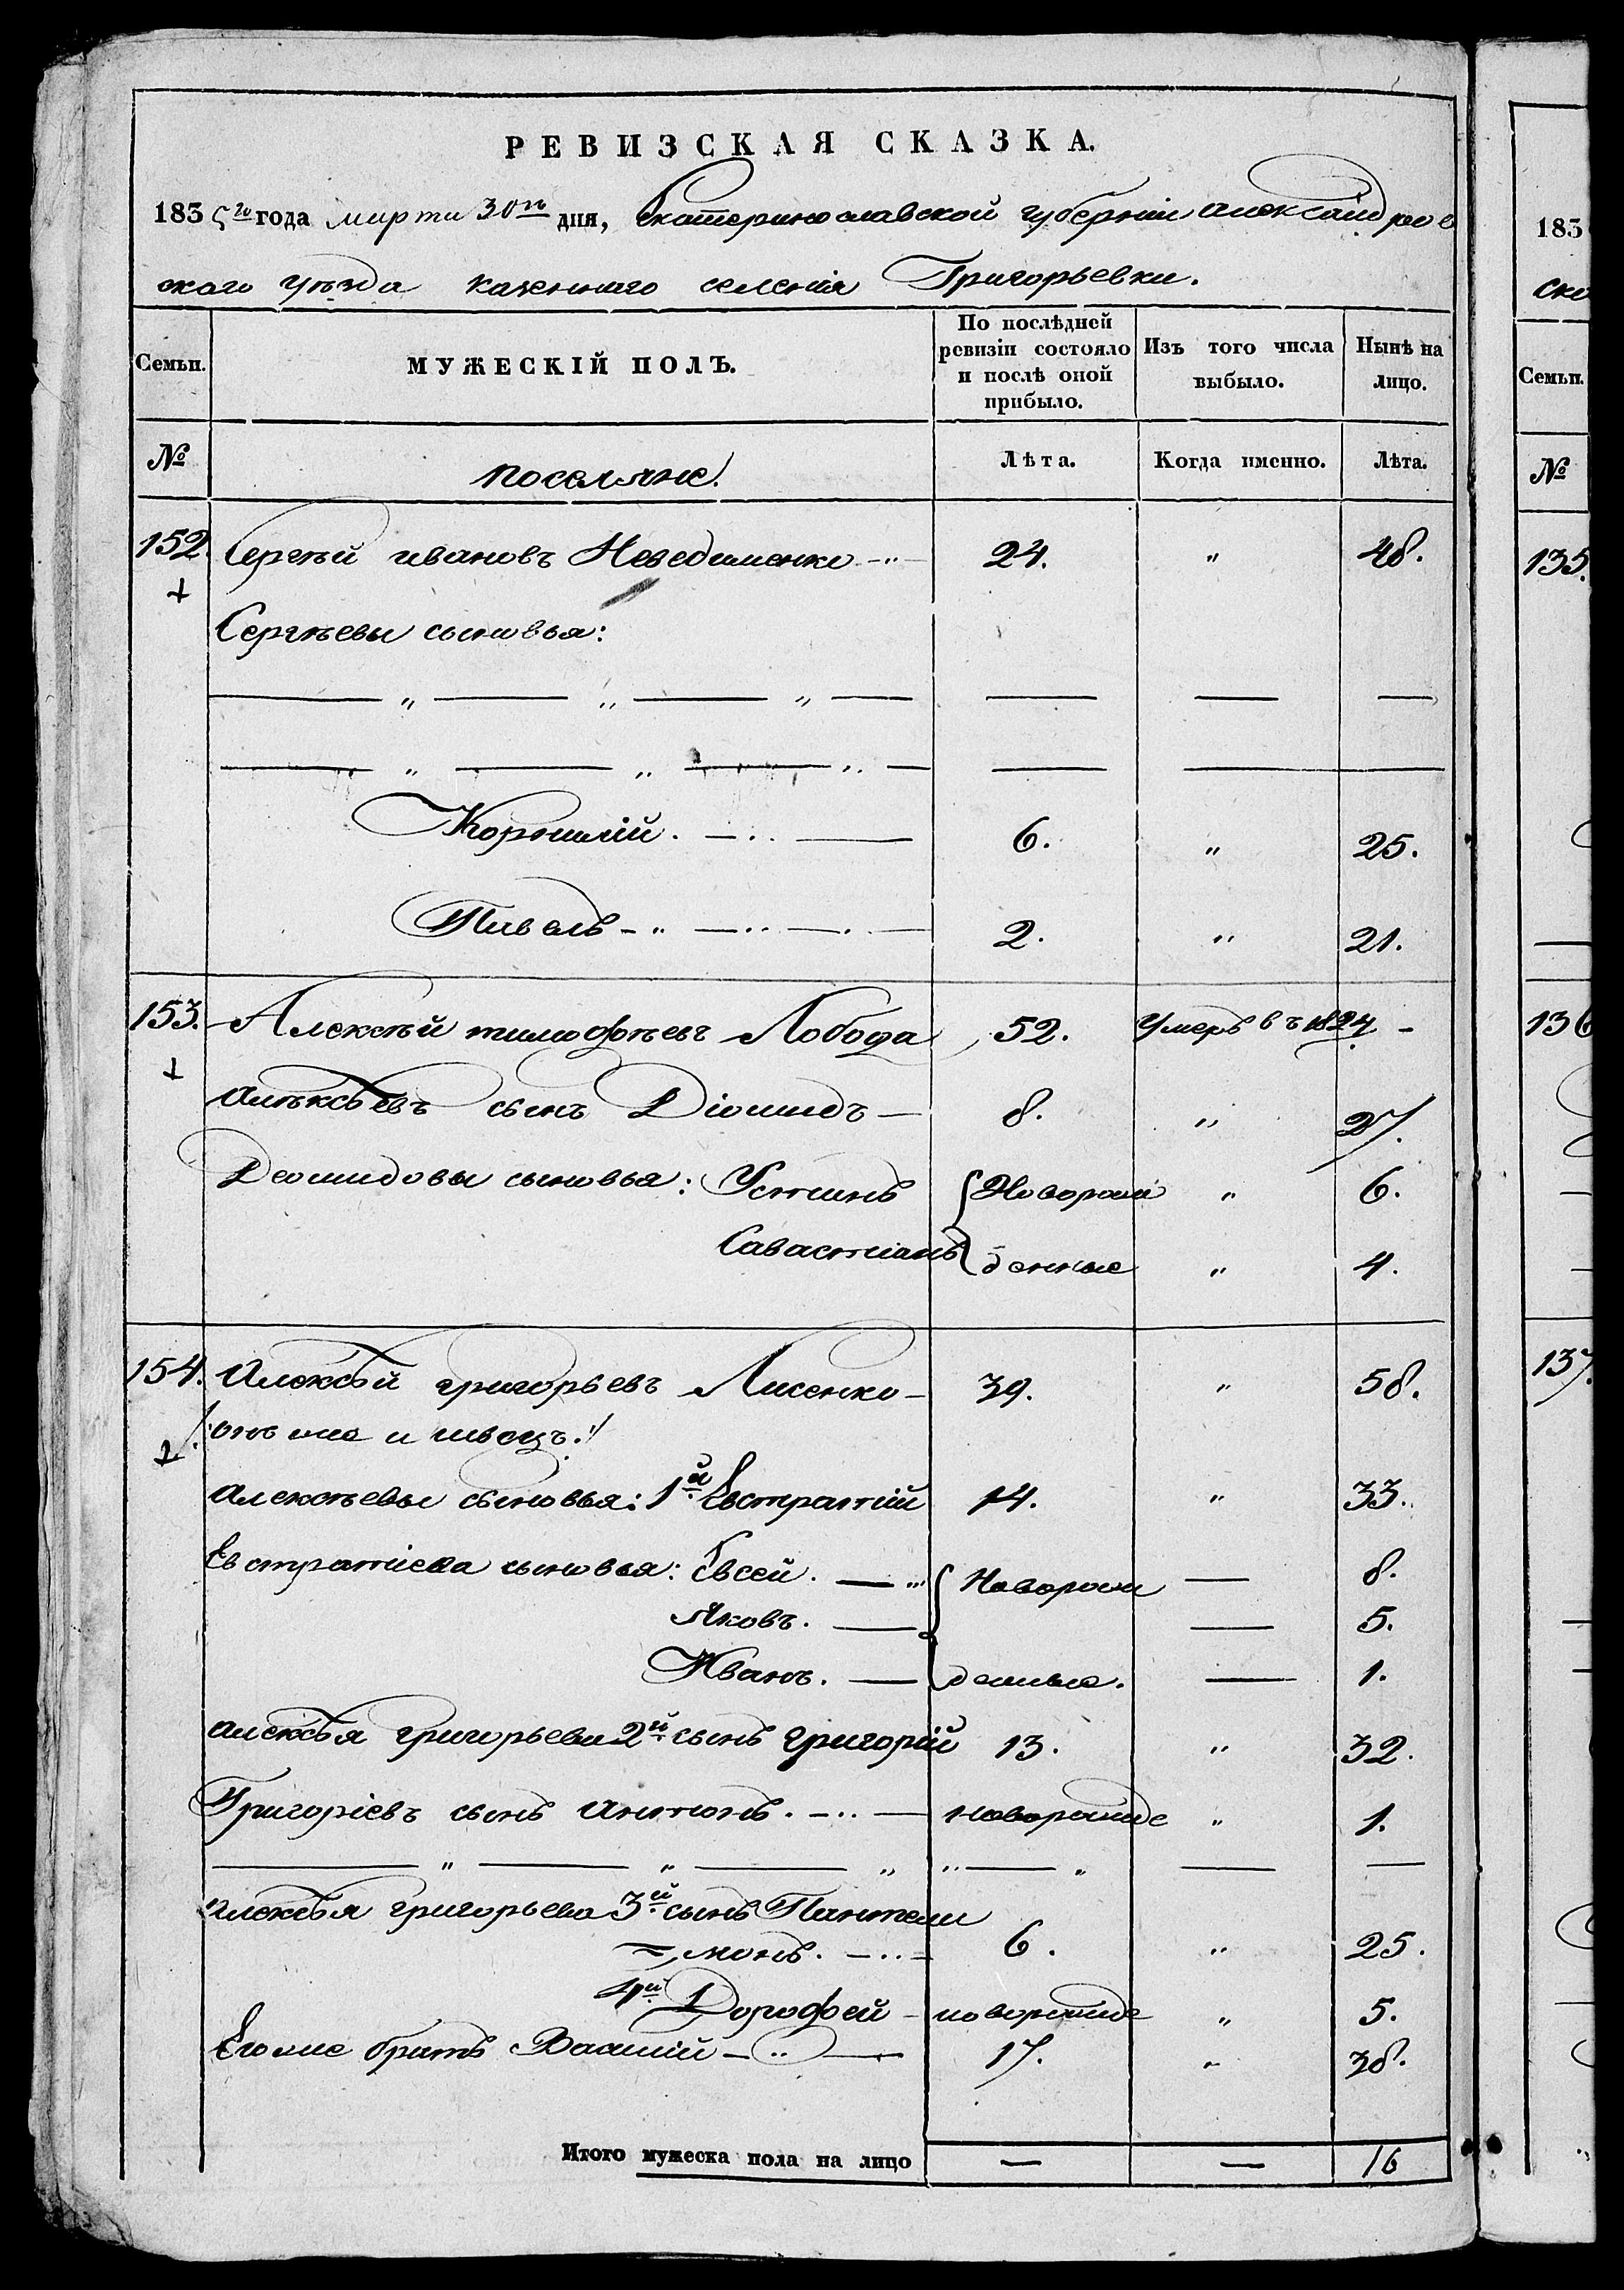 РЕВИЗСКАЯ СКАЗКА.
1835го года марта 30го дня, Екатеринославской губерніи александров
скаго уѣзда казеннаго селенія Григорьевки.
Семьи. МУЖЕСКІЙ ПОЛЪ. По послѣдней ревизіи состояло и послѣ оной прибыло. Изъ того числа выбыло. Нынѣ на лицо.
№ поселяне. Лѣта. Когда именно. Лѣта.
152. Сергѣй ивановъ Неведименко 24. " 48.
Сергѣевы сыновья:
Корнилій. 6. " 25.
Павелъ 2. " 21.
153. Алексѣй тимофѣевъ Лобода 52. Умеръ въ 1827 -
алѣксѣевъ сынъ Діомидъ 8. " 27.
Деомидовы сыновья: Устинъ Новорож " 6.
Савастіанъ денные " 4.
154. алексѣй григорьевъ Лисенко 39. " 58.
онъ же и швецъ.
алексѣевы сыновья: 1й Евстратій 14. " 33.
Евстратіева сыновья: Евсей. Новорож — 8.
Яковъ. — 5.
Иванъ. денные. — 1.
алексѣя григорьева 2й сынъ григорій 13. " 32.
Григоріевъ сынъ антонъ. новорожде " 1.
алексѣя григорьева 3й сынъ Пантели
монъ. 6. " 25.
4й Дорофей новорожде " 5.
Его же братъ Василій 17. " 38.
Итого мужеска пола на лицо — — 16
183
ско
Семьи.
№
135.
136
137.